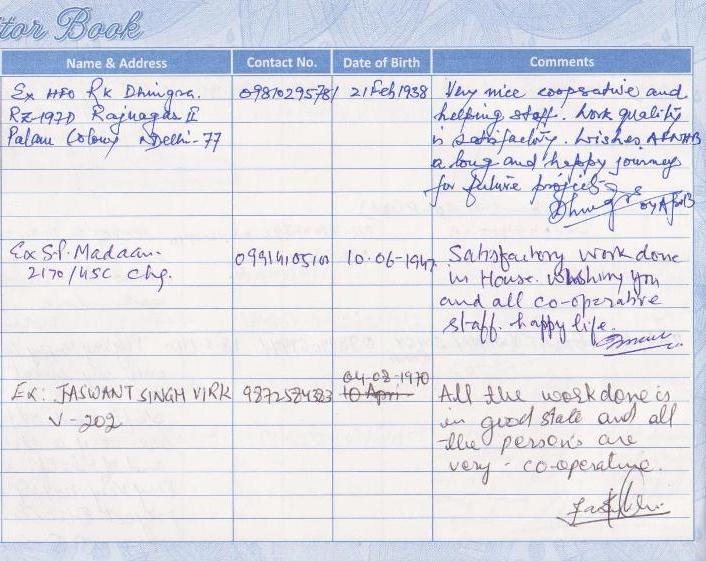 tor Book
Name & Address Contact No. Date of Birth Comments
Ex HFO RK Dhingra. 09810295781 21 Feb 1938 Very nice cooperative and
RZ-197D Rajnagar II helping staff. Work quality
Palam Colony NDelhi-77 is satisfactory. Wishes AFNHB
a long and happy journey
for future projects
Ex S.P. Madaan. 10.06-1947. Satisfactory work done
2170/45C Chg. in House. Wishing you
and all co-operative
staff. happy life.
04-02-1970
EX: JASWANT SINGH VIRK 9872584323 10 April All the work done is
V-202 in good state and all
the person's are
very - co-operative.